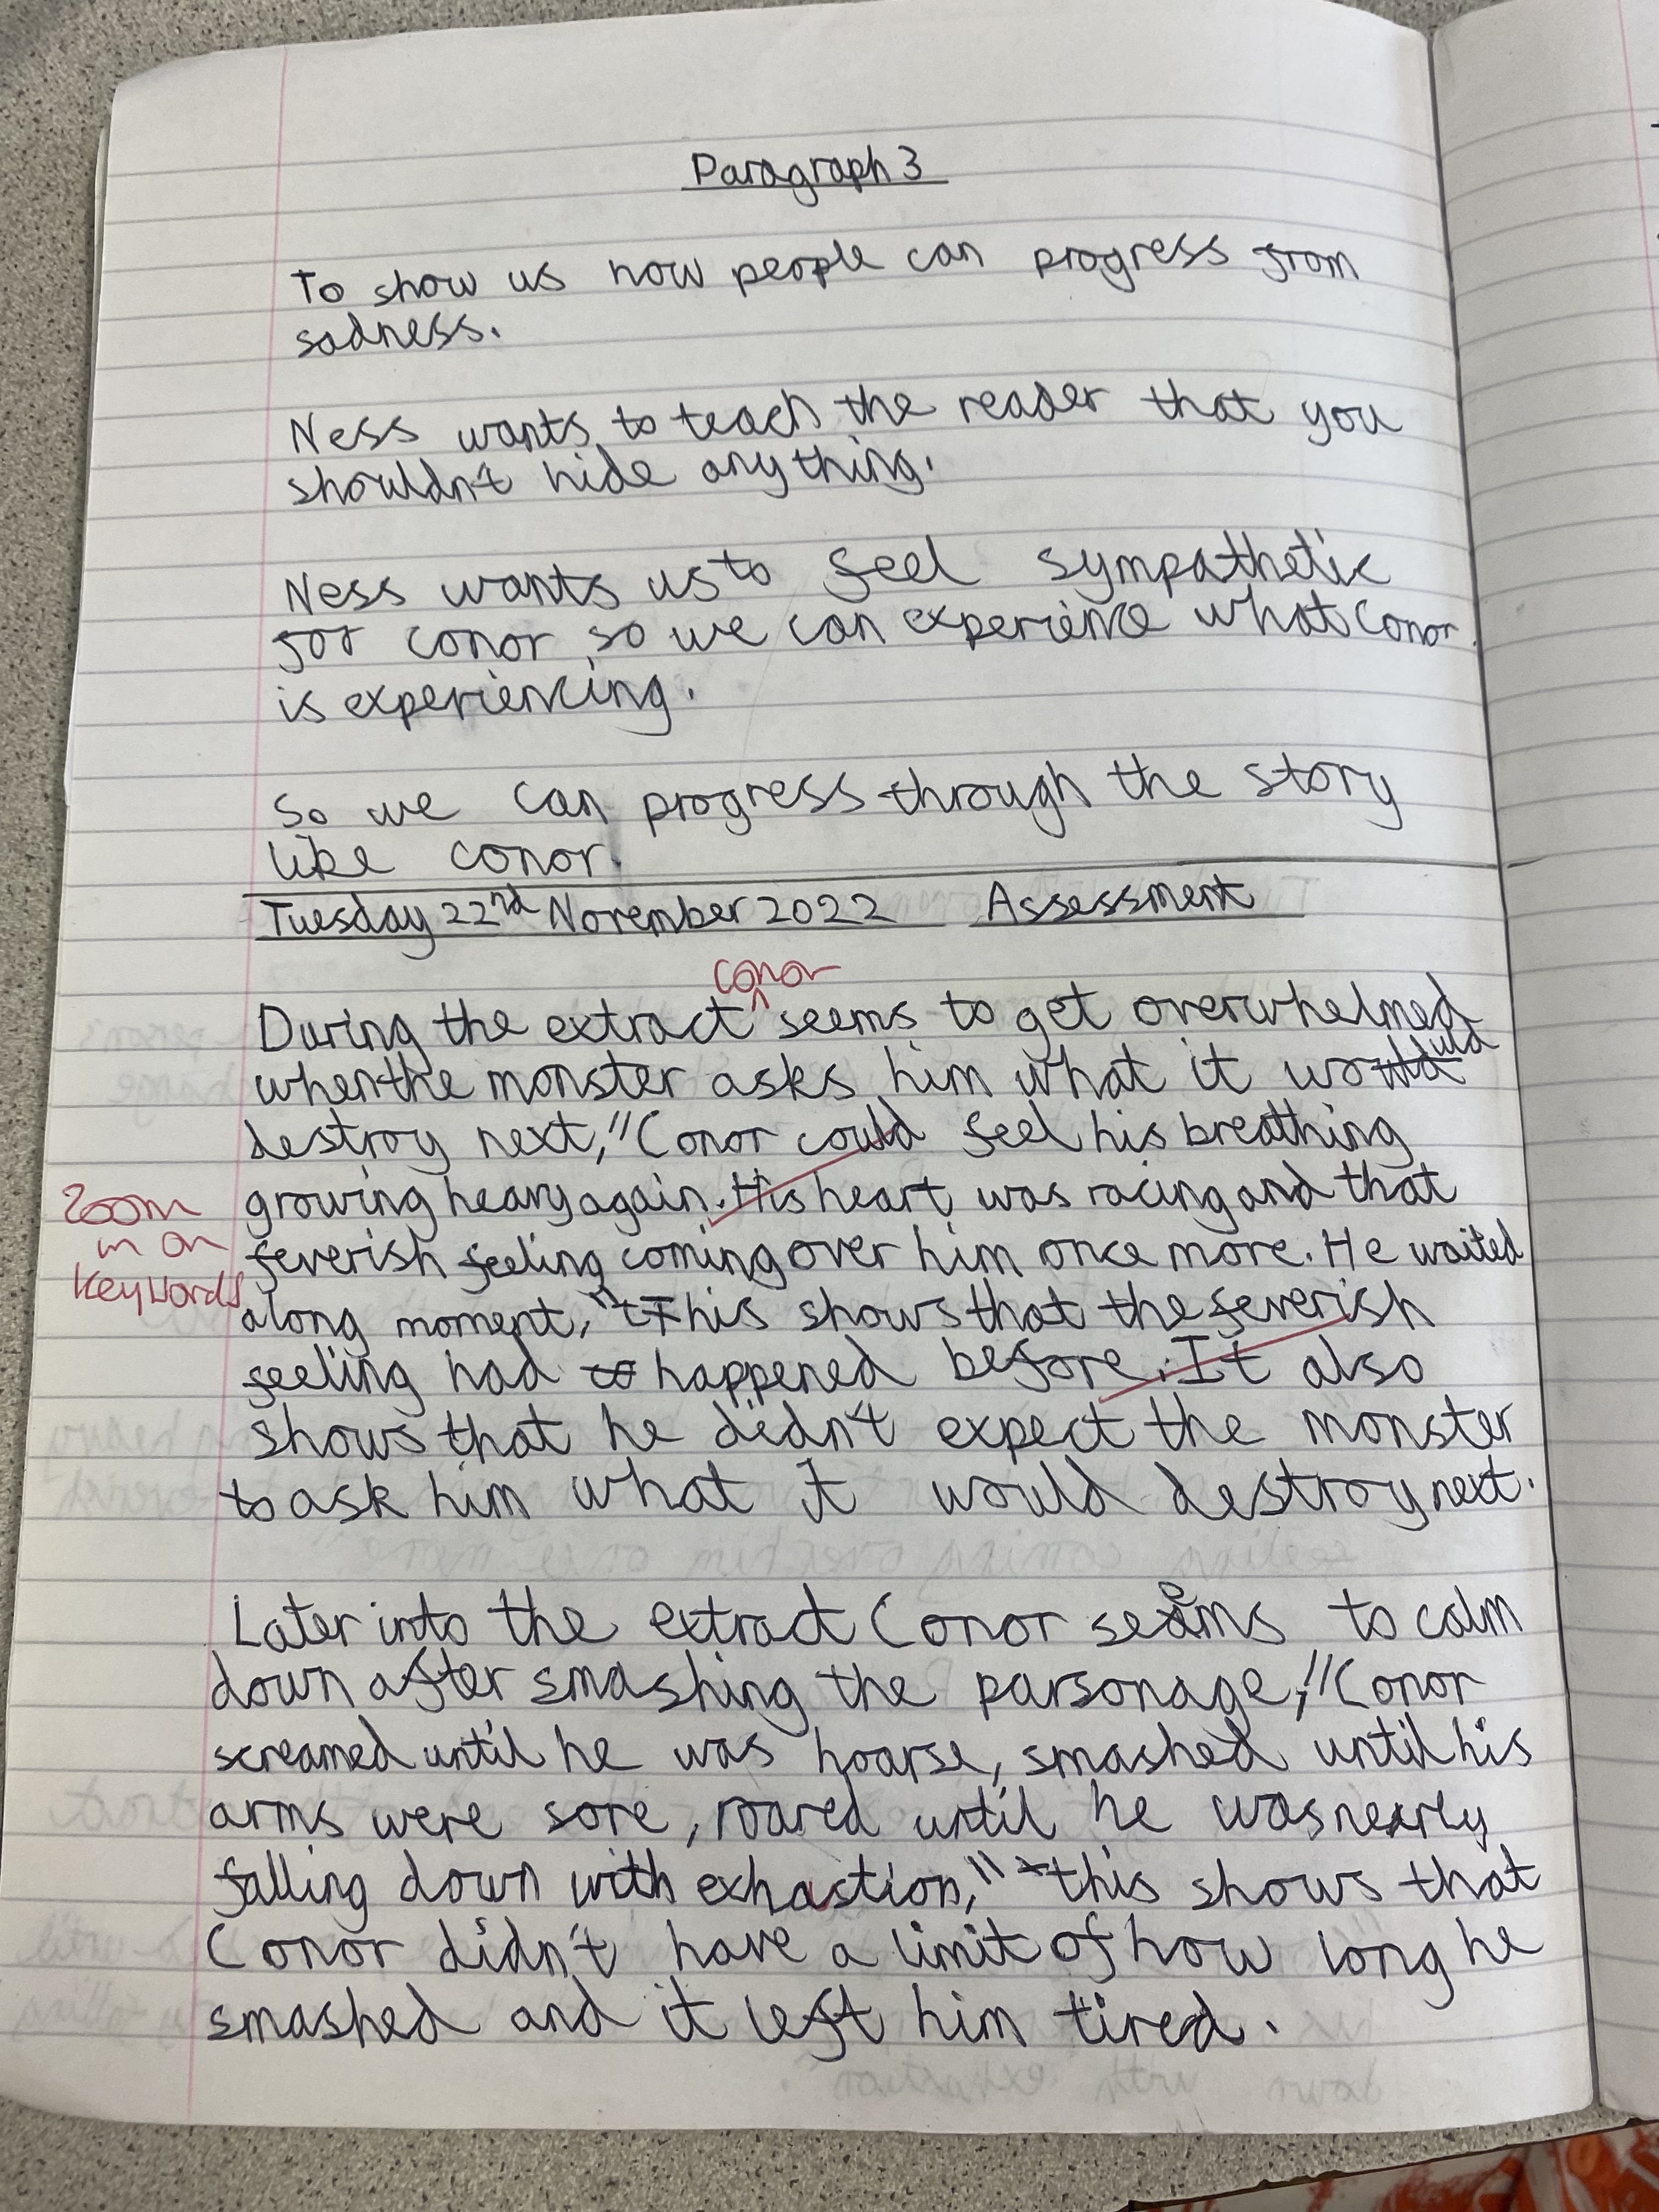 Paragraph 3
To show us how people can progress from
sadness.
Ness wants to teach the reader that you
shouldn't hide anything.
Ness wants us to feel sympathetic
for conor so we can experience what Conor
is experiencing.
So we can progress through the story
like conor.
Tuesday 22nd November 2022 Assessment
conor
During the extract ^ seems to get overwhelmed
when the monster asks him what it would
destroy next, "Conor could feel his breathing
growing heavy again. His heart was racing and that
Zoom
in on
keywords
feverish feeling coming over him once more. He waited
a long moment," This shows that the feverish
feeling had happened before. It also
shows that he didn't expect the monster
to ask him what it would destroy next.
Later into the extract Conor seems to calm
down after smashing the parsonage, "Conor
screamed until he was hoarse, smashed until his
arms were sore, roared until he was nearly
falling down with exhastion," this shows that
Conor didn't have a limit of how long he
smashed and it left him tired.